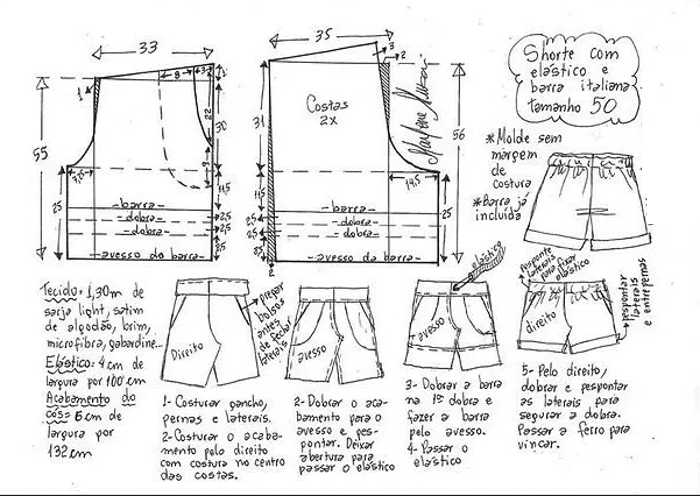 Shorte com
elástico e
barra italiana
tamanho 50
*Molde sem
margem
de
costura
*Barra já
incluída
33
8
3
1
22
30
55
3,5
25
11,5
-barra-
-dobra-
-dobra-
-avesso da barra-
2,5
2,5
35
3
2
Costas
2x
Marlene Mukai
31
56
14,5
11,5
25
25
-barra-
-dobra-
-dobra-
-avesso da barra-
2,5
2,5
2
Tecido= 1,30m de
sarja light, satim
de algodão, brim,
microfibra, gabardine...
Elástico: 4 cm de
largura por 100 cm
Acabamento do
cós= 6 cm de
largura por
132 cm
Direito
prepar
bolsos
antes
de fechar
laterais
1- Costurar gancho,
pernas e laterais.
2- Costurar o acaba-
mento pelo direito
com costura no centro
das costas.
avesso
2- Dobrar o aca-
bamento para o
avesso e pes-
pontar. Deixar
abertura para
passar o elástico
elástico
avesso
3- Dobrar a barra
na 1ª dobra e
fazer a barra
pelo avesso.
4- Passar o
elástico
pesponte
laterais
para fixar
elástico
direito
pespontar
laterais
e entrepernas
5- Pelo direito,
dobrar e pespontar
as laterais para
segurar a dobra.
Passar a ferro para
vincar.